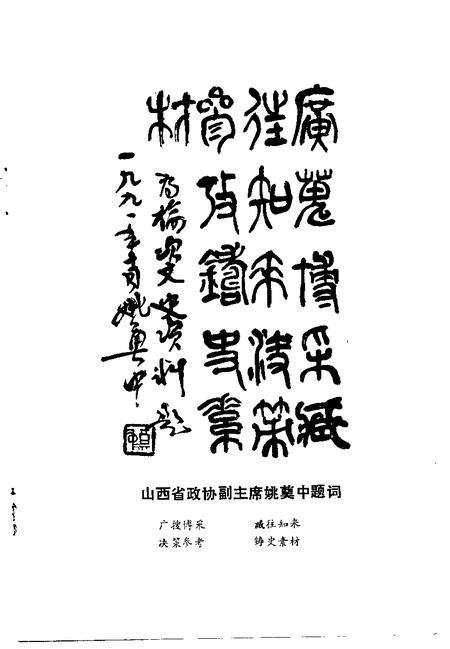 廣蒐博采臧
往知来決策
參攷鑄史素
材
为榆次文史资料题
一九九一年 姚奠中
山西省政协副主席姚奠中题词
广搜博采 藏往知来
决策参考 铸史素材